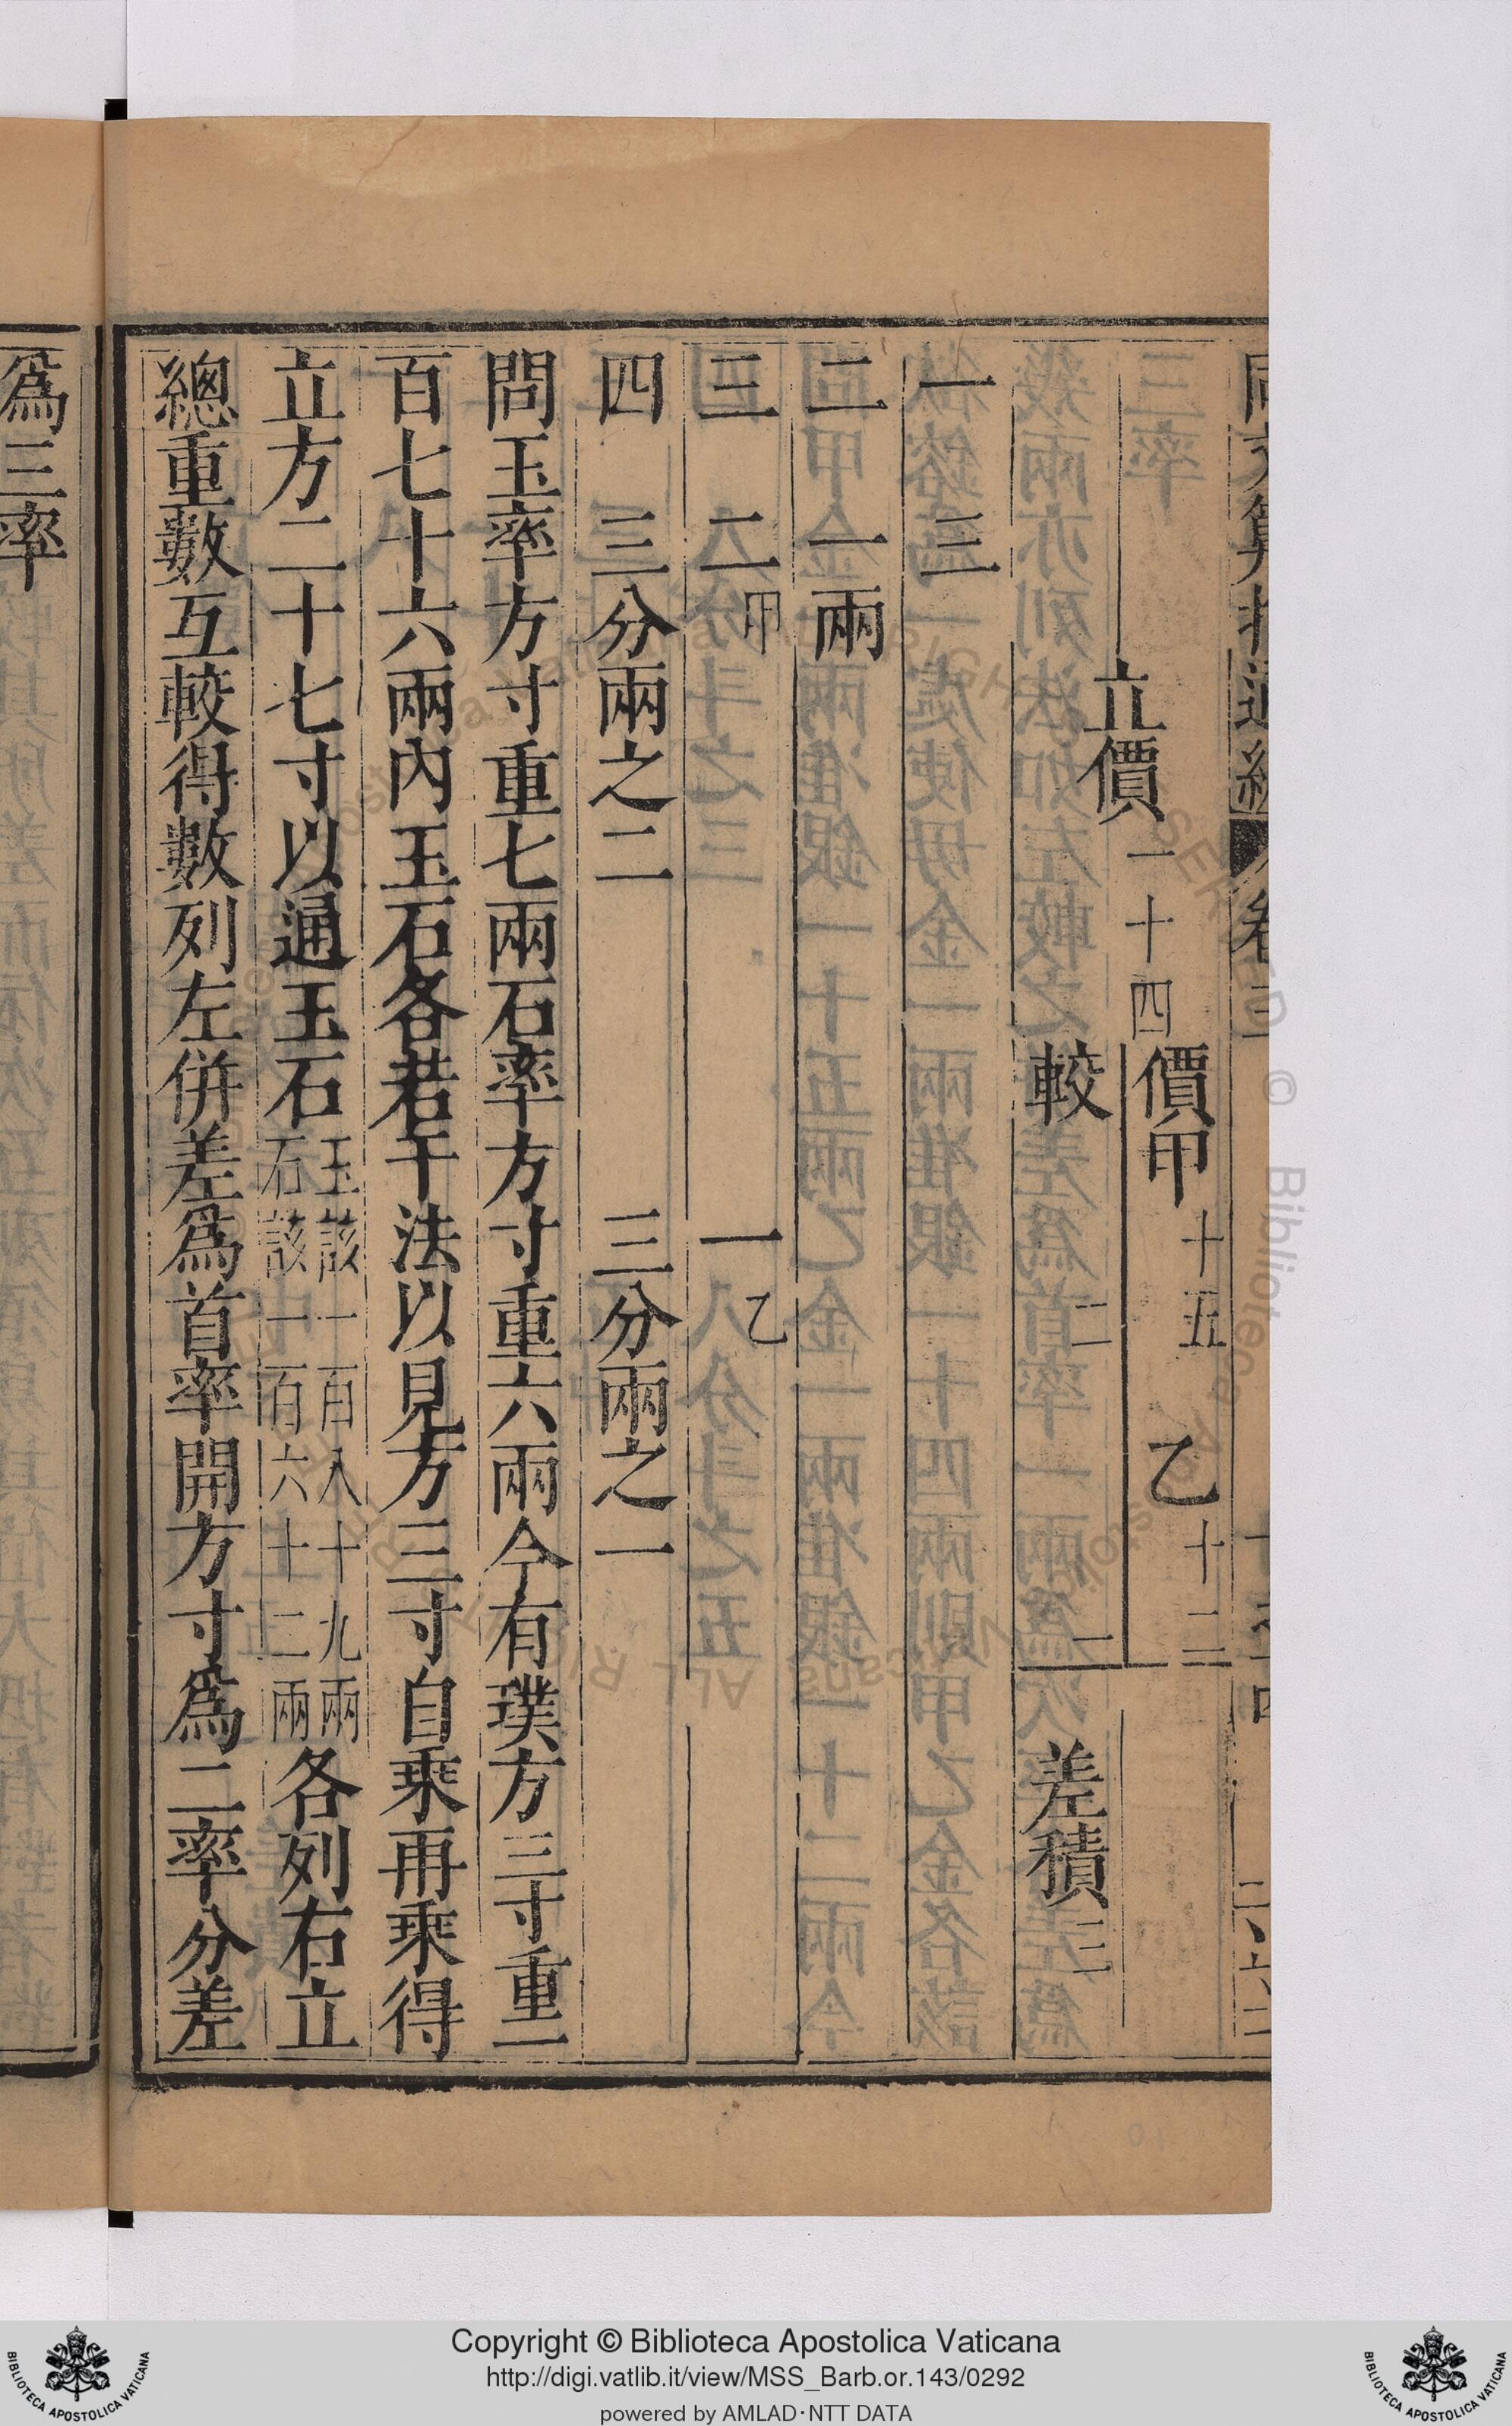 價甲十五 乙十二
立價一十四
較 二 一 差積三
一 三
二 一兩
三 二甲 一乙
四 三分兩之二 三分兩之一
問玉率方寸重七兩石率方寸重六兩今有璞方三寸重一
百七十六兩內玉石各若干法以見方三寸自乘再乘得
立方二十七寸以通玉石玉該一百八十九兩石該一百六十二兩各列右立
總重數互較得數列左併差為首率開方寸為二率分差
為三率
Copyright © Biblioteca Apostolica Vaticana
http://digi.vatlib.it/view/MSS_Barb.or.143/0292
powered by AMLAD·NTT DATA
BIBLIOTECA APOSTOLICA VATICANA
BIBLIOTECA APOSTOLICA VATICANA